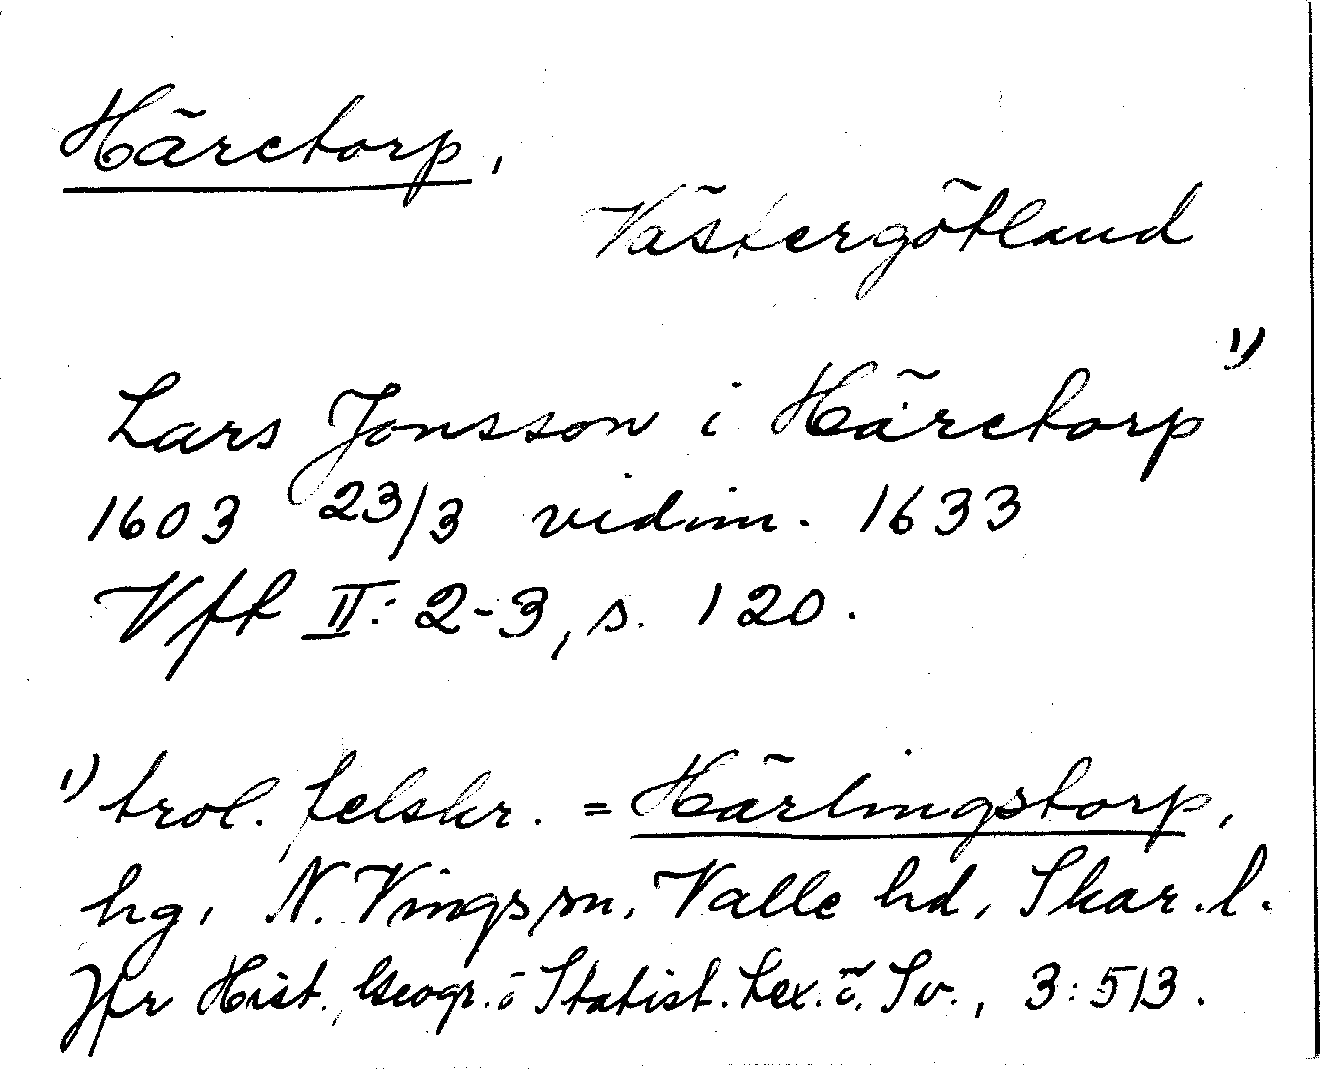 Häretorp,
Västergötland
Lars Jonsson i Häretorp 1)
1603 23/3 vidim. 1633
Vft II: 2-3, s. 120.
1) trol. felskr. = Härlingstorp,
hg, N. Vings sn, Valle hd, Skar. l.
Jfr Hist. Geogr. o Statist. Lex. ö. Sv., 3:513.